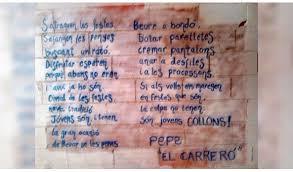 S'atraquen les festes
S'atansen les penyes
buscant un rato.
Disfrutar esperen
perque abans no eren
I ara ja ho són.
de les festes,
Jóvens són, i tenen
la gran ocasió
de les penes
Beure a bondó,
Botar pareltetes
cremar pantalons
anar a desfiles
i a les processons.
Si als volts en maregen
en festes que són,
la culpa no tenen
són joves COLLONS!
PEPE
"EL CARRERÓ"